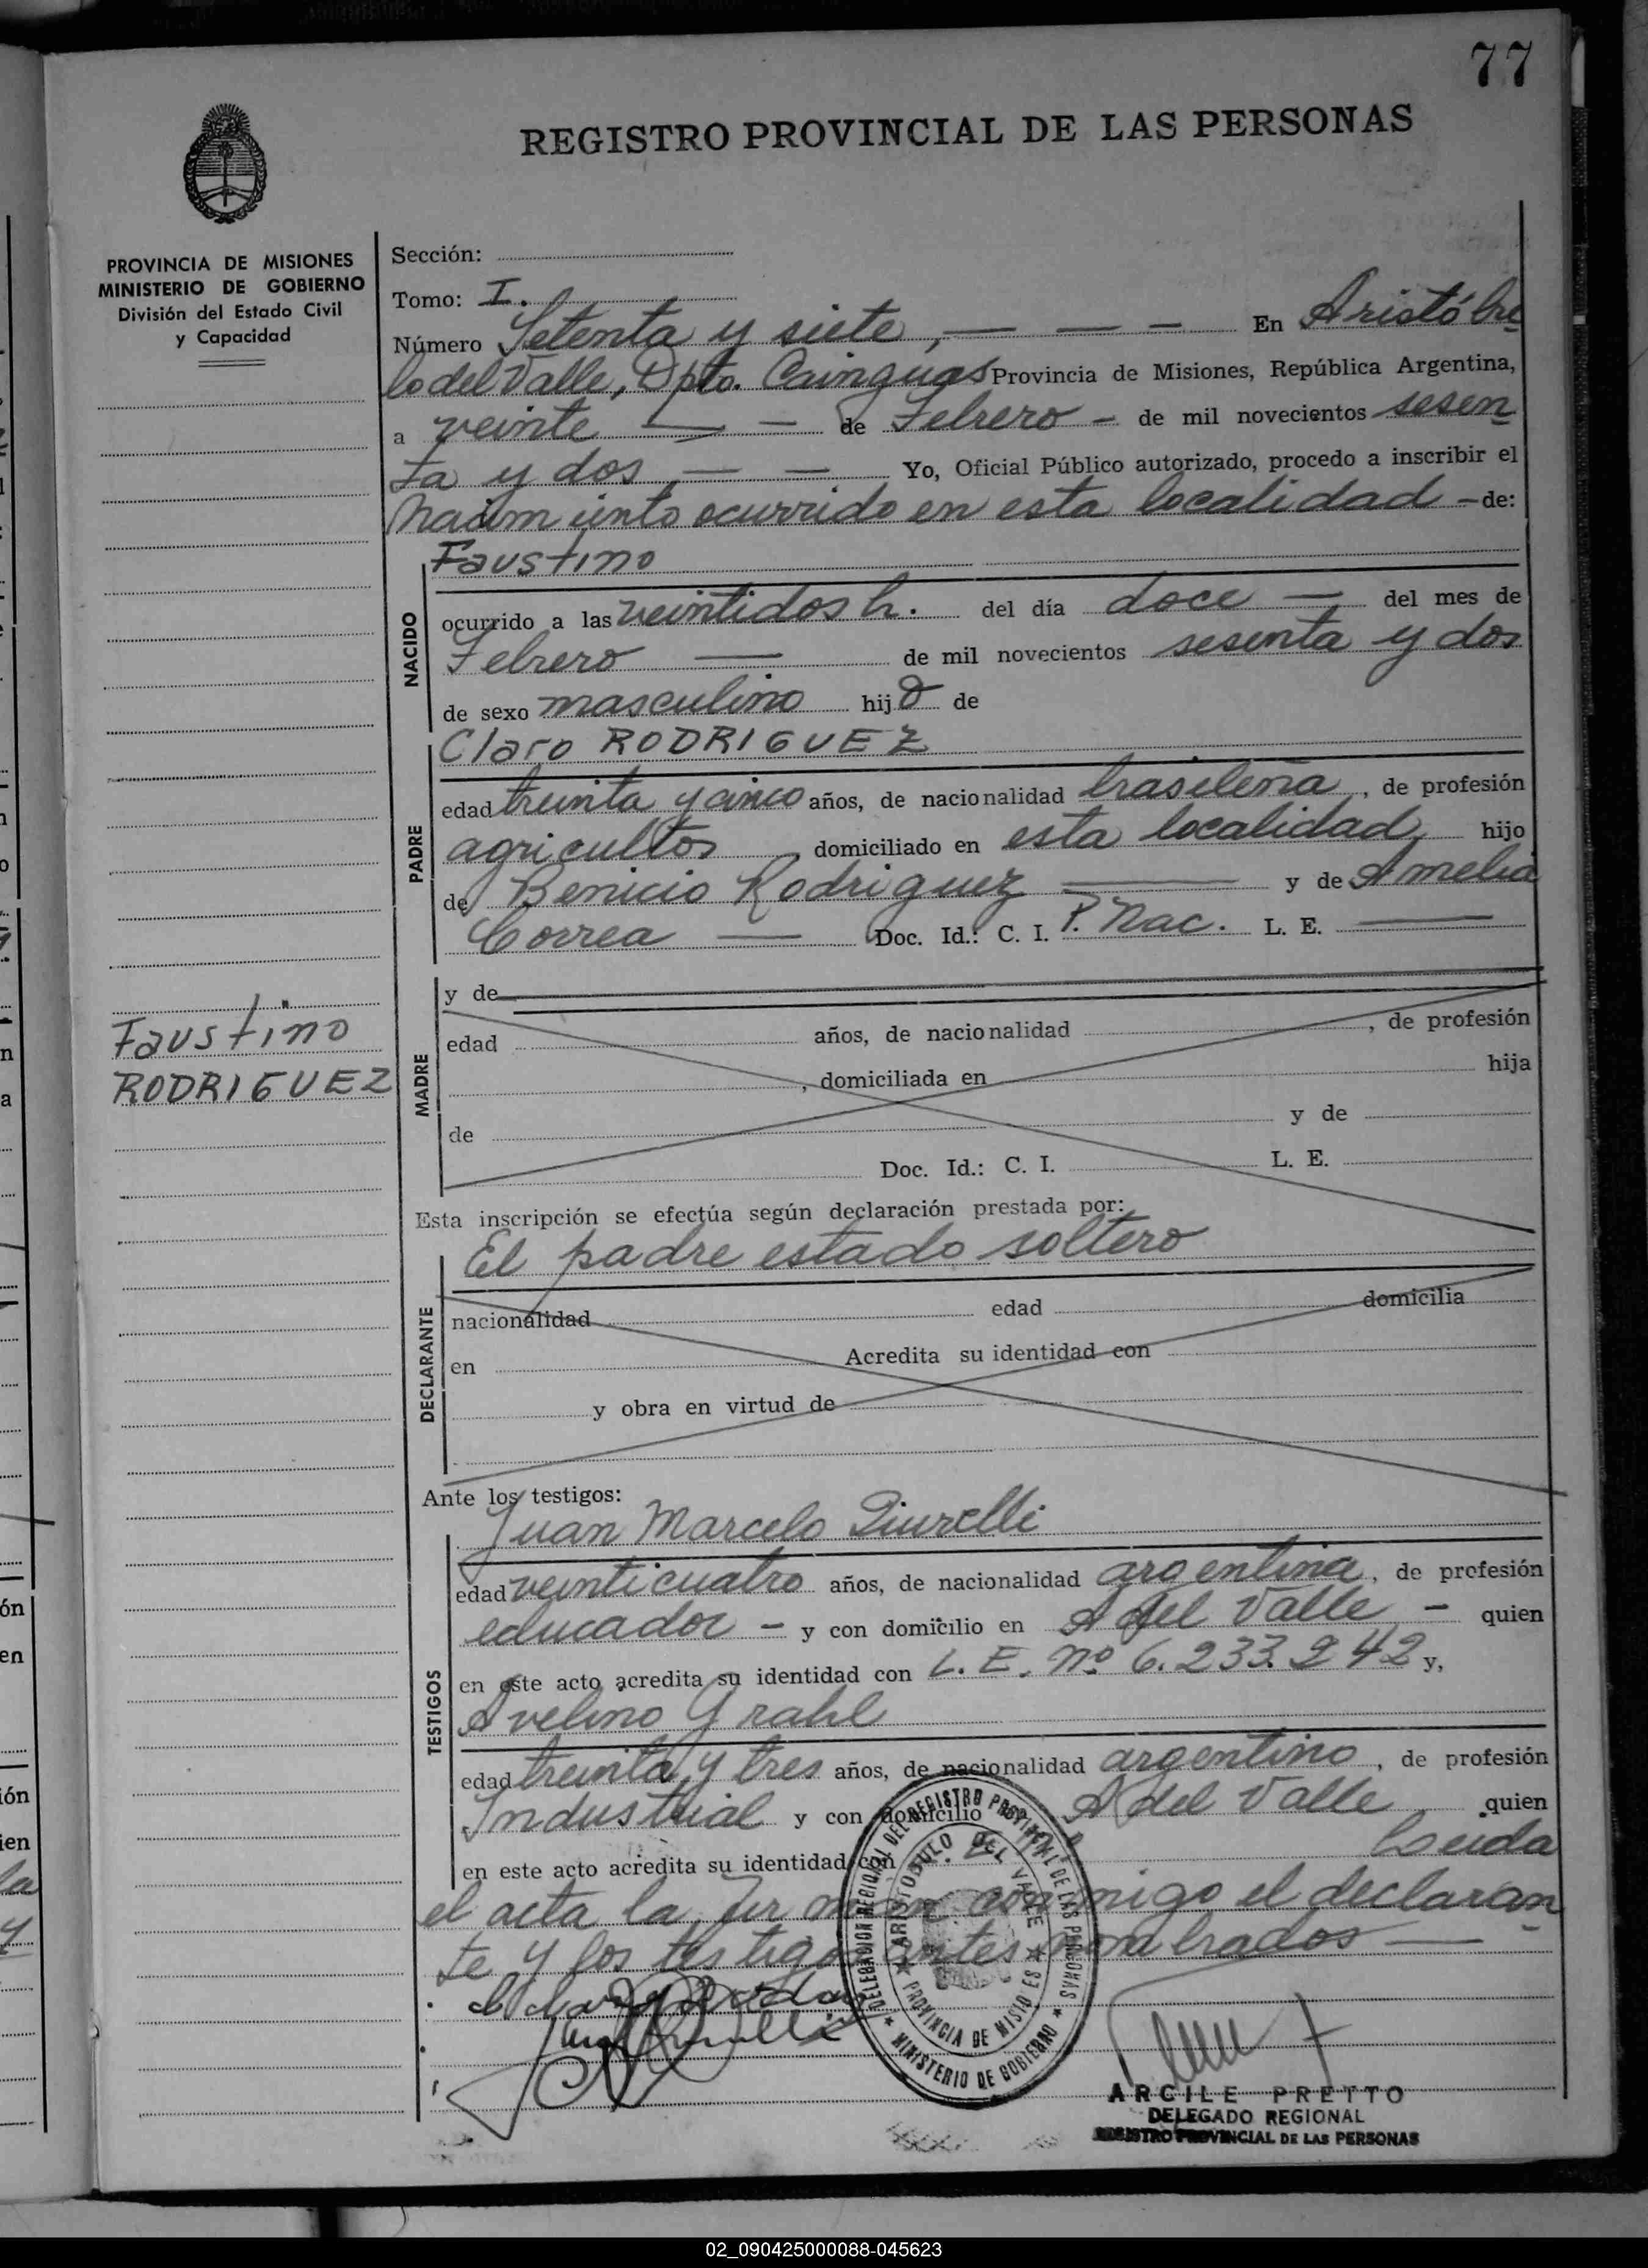 77
REGISTRO PROVINCIAL DE LAS PERSONAS
PROVINCIA DE MISIONES
MINISTERIO DE GOBIERNO
División del Estado Civil
y Capacidad
Sección:
Tomo: I.
Número Setenta y siete, — — — En Aristóbu
lo del Valle, Dpto. Cainguas Provincia de Misiones, República Argentina,
a veinte — — de Febrero - de mil novecientos sesen
ta y dos — — Yo, Oficial Público autorizado, procedo a inscribir el
nacimiento ocurrido en esta localidad - de:
Faustino
NACIDO
ocurrido a las veintidos h. del día doce — del mes de
Febrero — de mil novecientos sesenta y dos
de sexo masculino hijo de
Claro RODRIGUEZ
PADRE
edad treinta y cinco años, de nacionalidad brasileña, de profesión
agricultor domiciliado en esta localidad, hijo
de Benicio Rodriguez — y de Amelia
Correa — Doc. Id.: C. I. P. Nac. L. E. —
MADRE
y de
edad años, de nacionalidad , de profesión
, domiciliada en hija
de y de
Doc. Id.: C. I. L. E.
Faustino
RODRIGUEZ
Esta inscripción se efectúa según declaración prestada por:
El padre estado soltero
DECLARANTE
nacionalidad edad domicilia
en Acredita su identidad con
y obra en virtud de
Ante los testigos:
Juan Marcelo
TESTIGOS
edad veinticuatro años, de nacionalidad argentina, de profesión
educador - y con domicilio en A del Valle - quien
en este acto acredita su identidad con L. E. nº 6.233.242 y,
Avelino Grahl
edad treinta y tres años, de nacionalidad argentino, de profesión
Industrial y con domicilio A del Valle quien
en este acto acredita su identidad con Leida
el acta la firman conmigo el declaran
te y los testigos antes nombrados —
DELEGACION REGIONAL DEL REGISTRO PROVINCIAL DE LAS PERSONAS
ARISTOBULO DEL VALLE
PROVINCIA DE MISIONES
MINISTERIO DE GOBIERNO
ARCILE PRETTO
DELEGADO REGIONAL
REGISTRO PROVINCIAL DE LAS PERSONAS
02_090425000088-045623